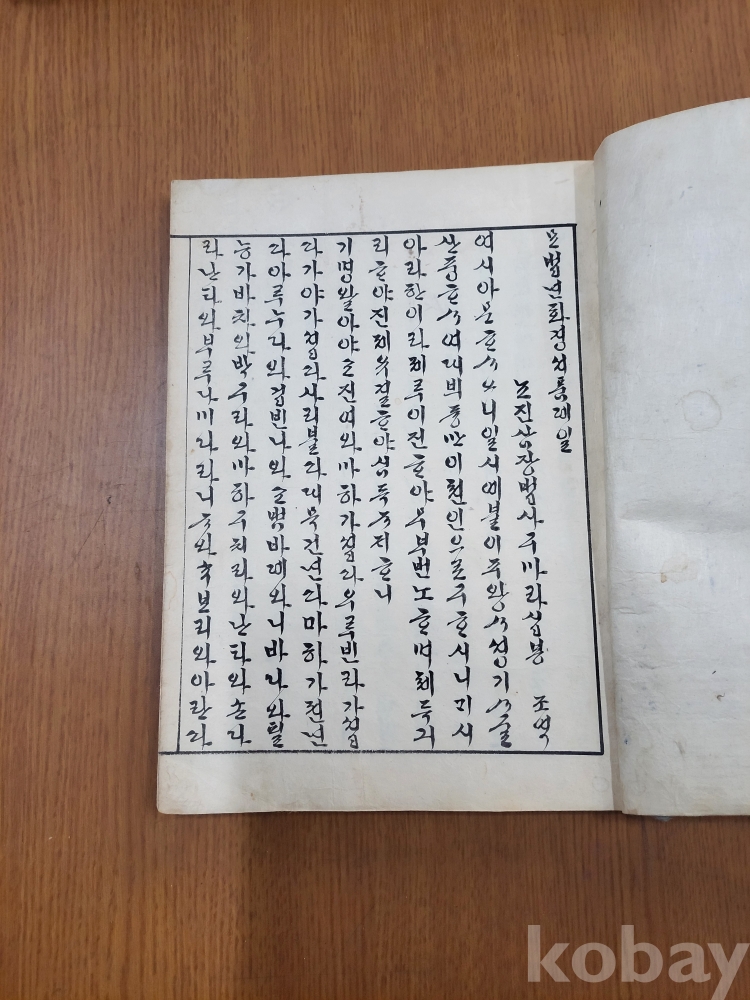 묘법년화경셔품뎨일
됴진삼장법사구마라십봉 조역
여시아문호ᄉᆞ오니일시예불이주왕ᄉᆞ셩기ᄉᆞ굴
산즁호ᄉᆞ여대비구즁만이쳔인으로구호시니ᄀᆡ시
아라한이라졔루이진호야무부번노호며쳬득긔
리호야진졔유결호야심득ᄌᆞᄌᆡ호니
기명왈아야교진여와마하가섭과우루빈라가섭
과가야가섭과사리불과대목건년과마하가젼년
과아루누다와겁빈나와교범바뎨와니바다와필
능가바차와박구라와마하구치라와난타와손다
라난타와부루나미다라니ᄌᆞ와수보리와아란과
kobay